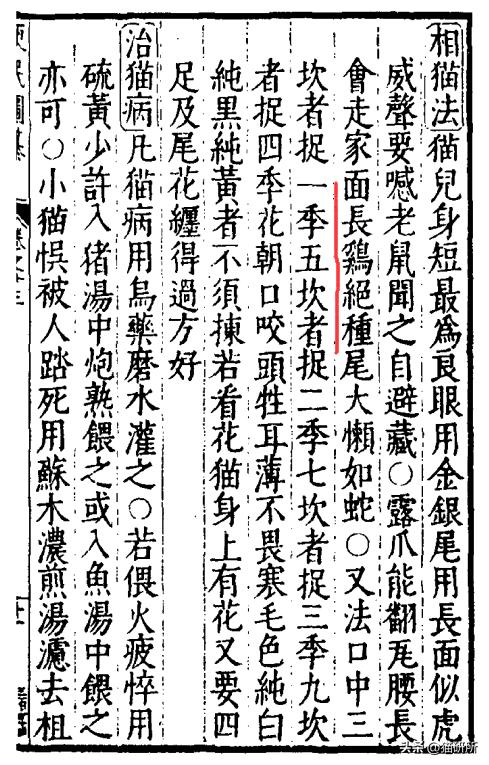 相猫法猫兒身短最爲良眼用金銀尾用長面似虎
威聲要喊老鼠聞之自避藏○露爪能翻瓦腰長
會走家面長鷄絕種尾大懶如蛇○又法口中三
坎者捉一季五坎者捉二季七坎者捉三季九坎
者捉四季花朝口咬頭牲耳薄不畏寒毛色純白
純黑純黃者不須揀若看花猫身上有花又要四
足及尾花纏得過方好
治猫病凡猫病用烏藥磨水灌之○若偎火疲悴用
硫黃少許入猪湯中炮熟餵之或入魚湯中餵之
亦可○小猫悞被人踏死用蘇木濃煎湯濾去柤
頭条@猫研所